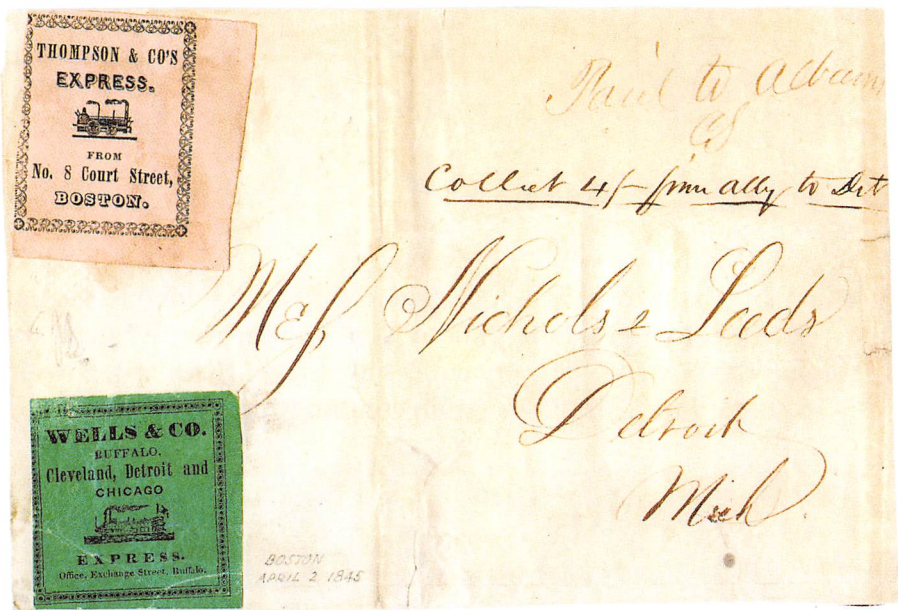 THOMPSON & CO'S
EXPRESS.
FROM
No. 8 Court Street,
BOSTON.
Paid to Albany
Collect 4/- from Alby to Det
Messrs Nichols & Leeds
Detroit
Mich.
WELLS & CO.
BUFFALO,
Cleveland, Detroit and
CHICAGO
EXPRESS.
Office, Exchange Street, Buffalo.
BOSTON
APRIL 2 1845